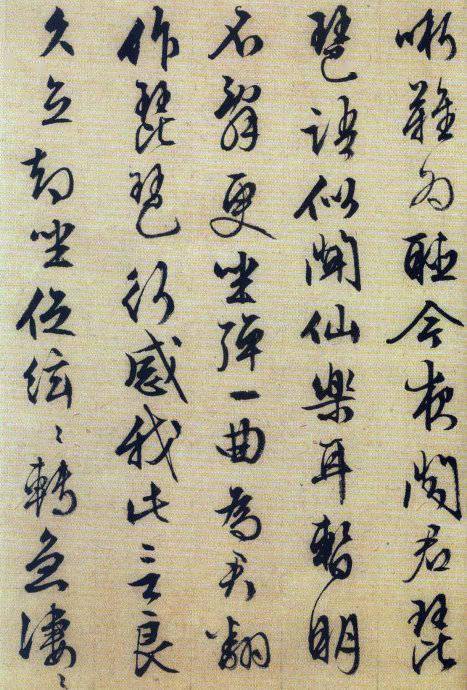 哳難為聽今夜聞君琵
琶語似聞仙樂耳暫明
莫辭更坐彈一曲為君翻
作琵琶行感我此言良
久立却坐促絃〻轉急淒〻